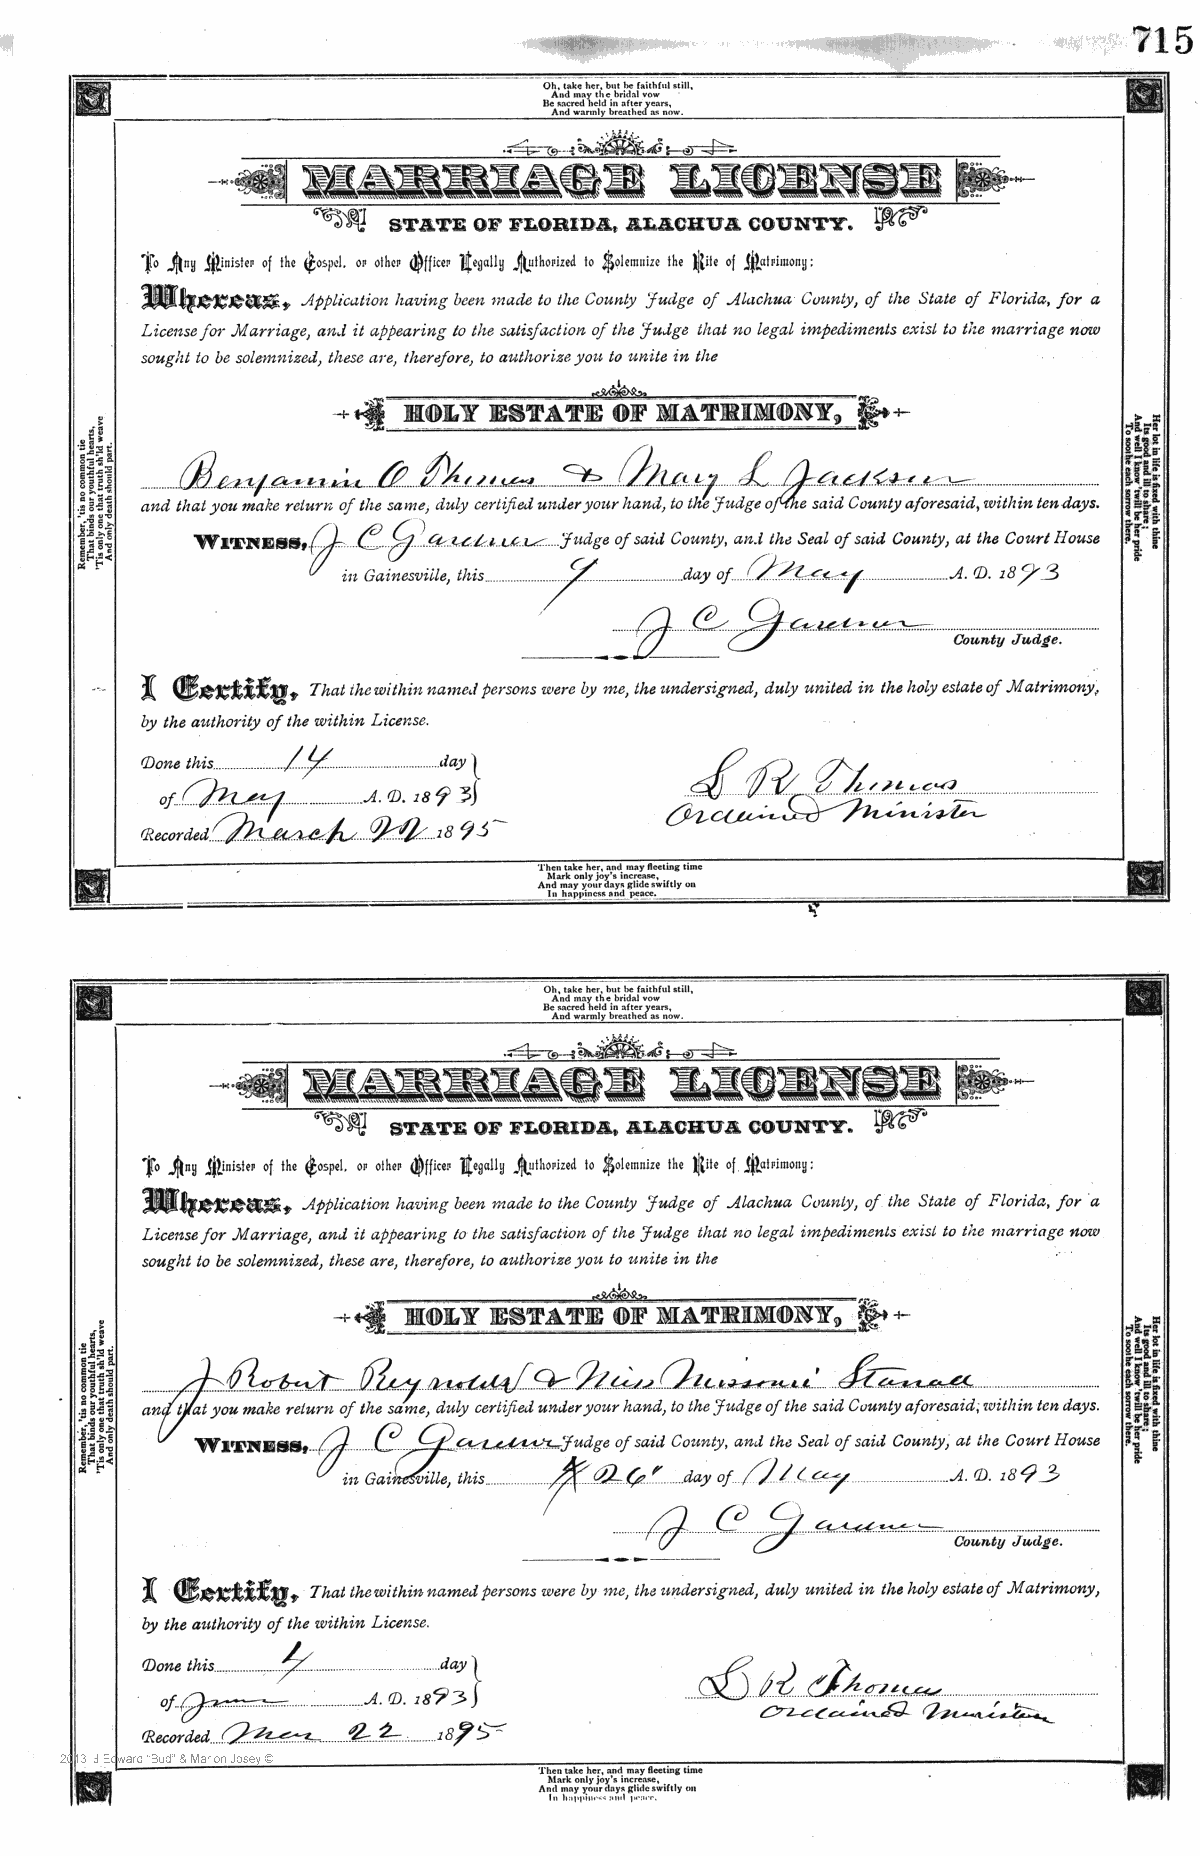 715
Oh, take her, but be faithful still,
And may the bridal vow
Be sacred held in after years,
And warmly breathed as now.
MARRIAGE LICENSE
STATE OF FLORIDA, ALACHUA COUNTY.
To Any Minister of the Gospel, or other Officer Legally Authorized to Solemnize the Rite of Matrimony:
Whereas, Application having been made to the County Judge of Alachua County, of the State of Florida, for a
License for Marriage, and it appearing to the satisfaction of the Judge that no legal impediments exist to the marriage now
sought to be solemnized, these are, therefore, to authorize you to unite in the
HOLY ESTATE OF MATRIMONY,
Benjamin O Thomas & Mary L Jackson
and that you make return of the same, duly certified under your hand, to the Judge of the said County aforesaid, within ten days.
WITNESS, J C Gardner Judge of said County, and the Seal of said County, at the Court House
in Gainesville, this 9 day of May A. D. 1893
J C Gardner
County Judge.
I Certify, That the within named persons were by me, the undersigned, duly united in the holy estate of Matrimony,
by the authority of the within License.
Done this 14 day
of May A. D. 1893
Recorded March 22 1895
L R Thomas
Ordained Minister
Remember, 'tis no common tie
That binds our youthful hearts,
'Tis only one that truth sh'ld weave
And only death should part.
Her lot in life is fixed with thine
Its good and ill to share;
And well I know 'twill be her pride
To soothe each sorrow there.
Then take her, and may fleeting time
Mark only joy's increase,
And may your days glide swiftly on
In happiness and peace.
Oh, take her, but be faithful still,
And may the bridal vow
Be sacred held in after years,
And warmly breathed as now.
MARRIAGE LICENSE
STATE OF FLORIDA, ALACHUA COUNTY.
To Any Minister of the Gospel, or other Officer Legally Authorized to Solemnize the Rite of Matrimony:
Whereas, Application having been made to the County Judge of Alachua County, of the State of Florida, for a
License for Marriage, and it appearing to the satisfaction of the Judge that no legal impediments exist to the marriage now
sought to be solemnized, these are, therefore, to authorize you to unite in the
HOLY ESTATE OF MATRIMONY,
J Robert Reynolds & Miss Missouri
and that you make return of the same, duly certified under your hand, to the Judge of the said County aforesaid, within ten days.
WITNESS, J C Gardner Judge of said County, and the Seal of said County, at the Court House
in Gainesville, this 26" day of May A. D. 1893
J C Gardner
County Judge.
I Certify, That the within named persons were by me, the undersigned, duly united in the holy estate of Matrimony,
by the authority of the within License.
Done this 4 day
of June A. D. 1893
Recorded Mar 22 1895
L R Thomas
Ordained Minister
Remember, 'tis no common tie
That binds our youthful hearts,
'Tis only one that truth sh'ld weave
And only death should part.
Her lot in life is fixed with thine
Its good and ill to share;
And well I know 'twill be her pride
To soothe each sorrow there.
2013 J Edward "Bud" & Marion Josey ©
Then take her, and may fleeting time
Mark only joy's increase,
And may your days glide swiftly on
In happiness and peace.